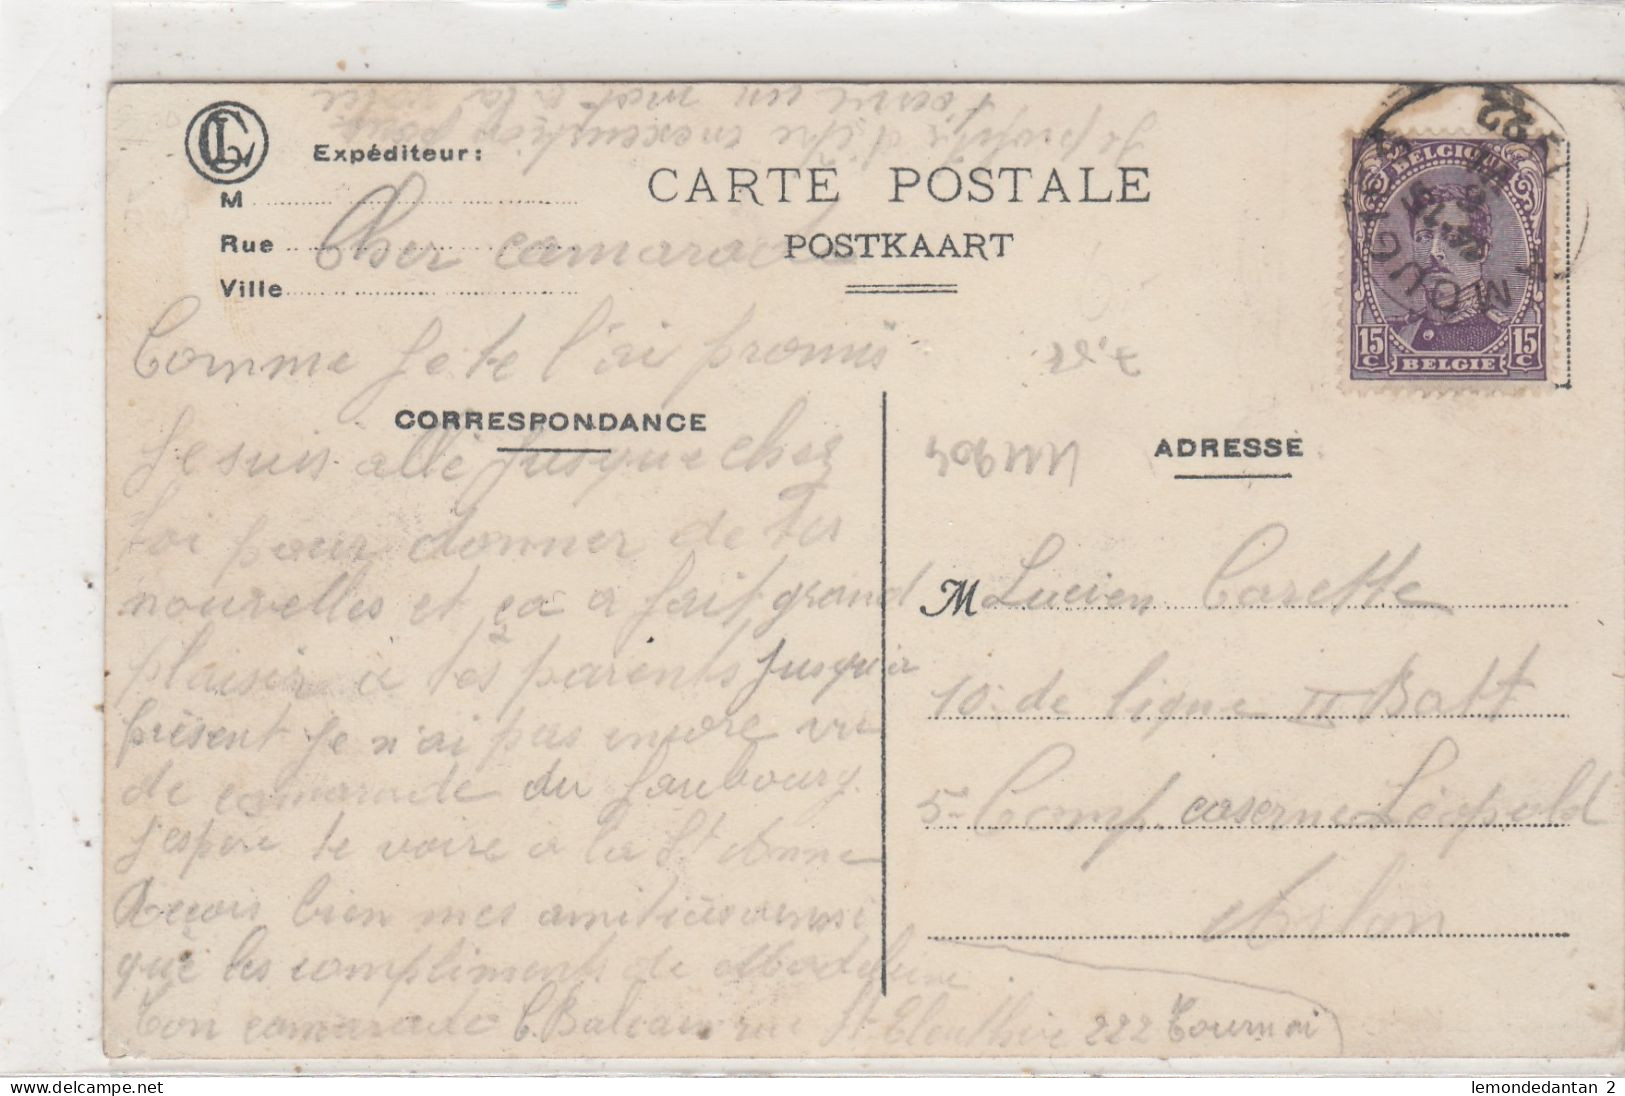 Je profite d'être en exemption pour
t'écrire un mot à la hâte
CL
Expéditeur:
M
Rue
Ville
CARTE POSTALE
POSTKAART
BELGIQUE
15 c
15 c
BELGIE
MOUSCR
22
Cher camarade
Comme Je te l'ai promis
CORRESPONDANCE
Je suis allé Jusque chez
toi pour donner de tes
nouvelles et ça a fait grand
plaisir à tes 2 parents Jusqu'à
présent Je n'ai pas encore vu
de camarade du faubourg.
J'espère te voire à la St Anne
Reçois bien mes amitiés ainsi
que les compliments de Madeleine.
Ton camarade C. Balcaen rue St Eleuthère 222 Tournai
ADRESSE
M Lucien Carette
10 de ligne II Batt
5e Comp. caserne Léopold
Arlon
lemondedantan 2